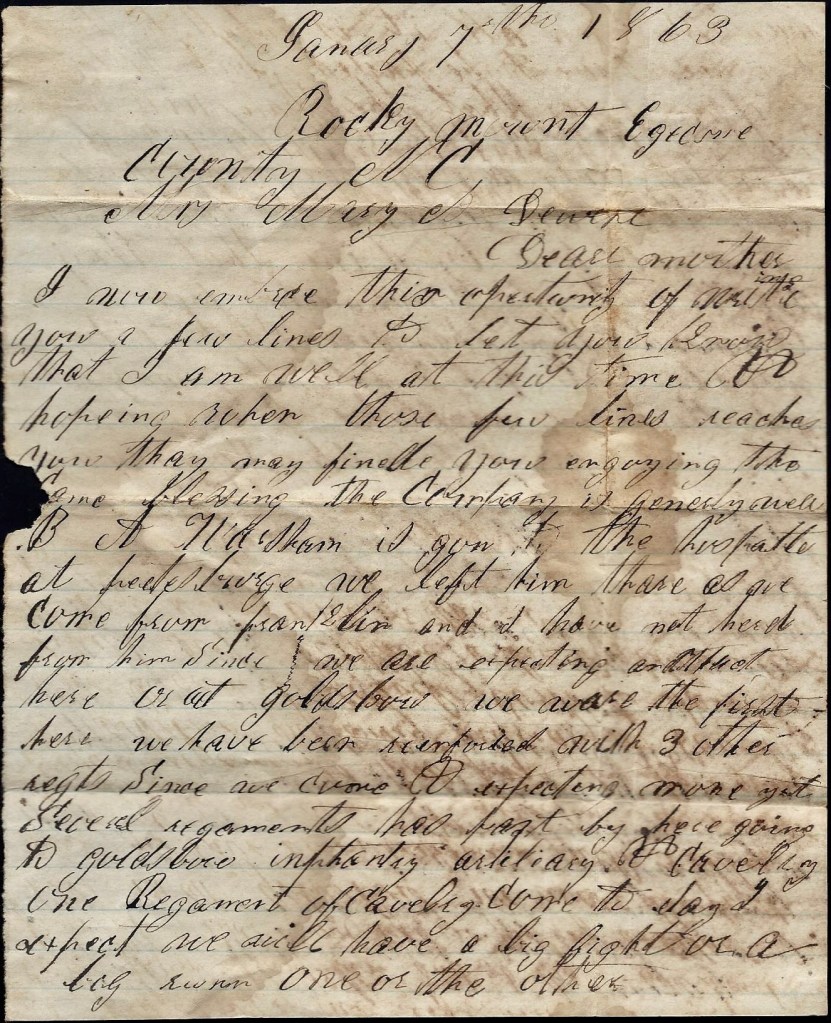 Januay 7th 1863
Rocky mount Egecome
County N C
Mrs Mary A.
Deare mother
I now embrse this opertunity of
you a few lines to let you know
that I am well at this time &
hopeing when those few lines reaches
you thay may finde you engoying the
Same blessing the Company is generly well
B A Warsham is gon to the hospatle
at petesburge we left him thare as we
Come from franklin and I have not herd
from him Since we are expecting an attact
here or at goldsborow we ware the first
here we have been reinforsed with 3 other
regts Since we come & expecting more yet
Severl regaments has past by here going
to goldsborow inphantry artiliary & Cavelry
One Regament of Cavelry Come to day I
expect we will have a big fight or a
big runn one or the other